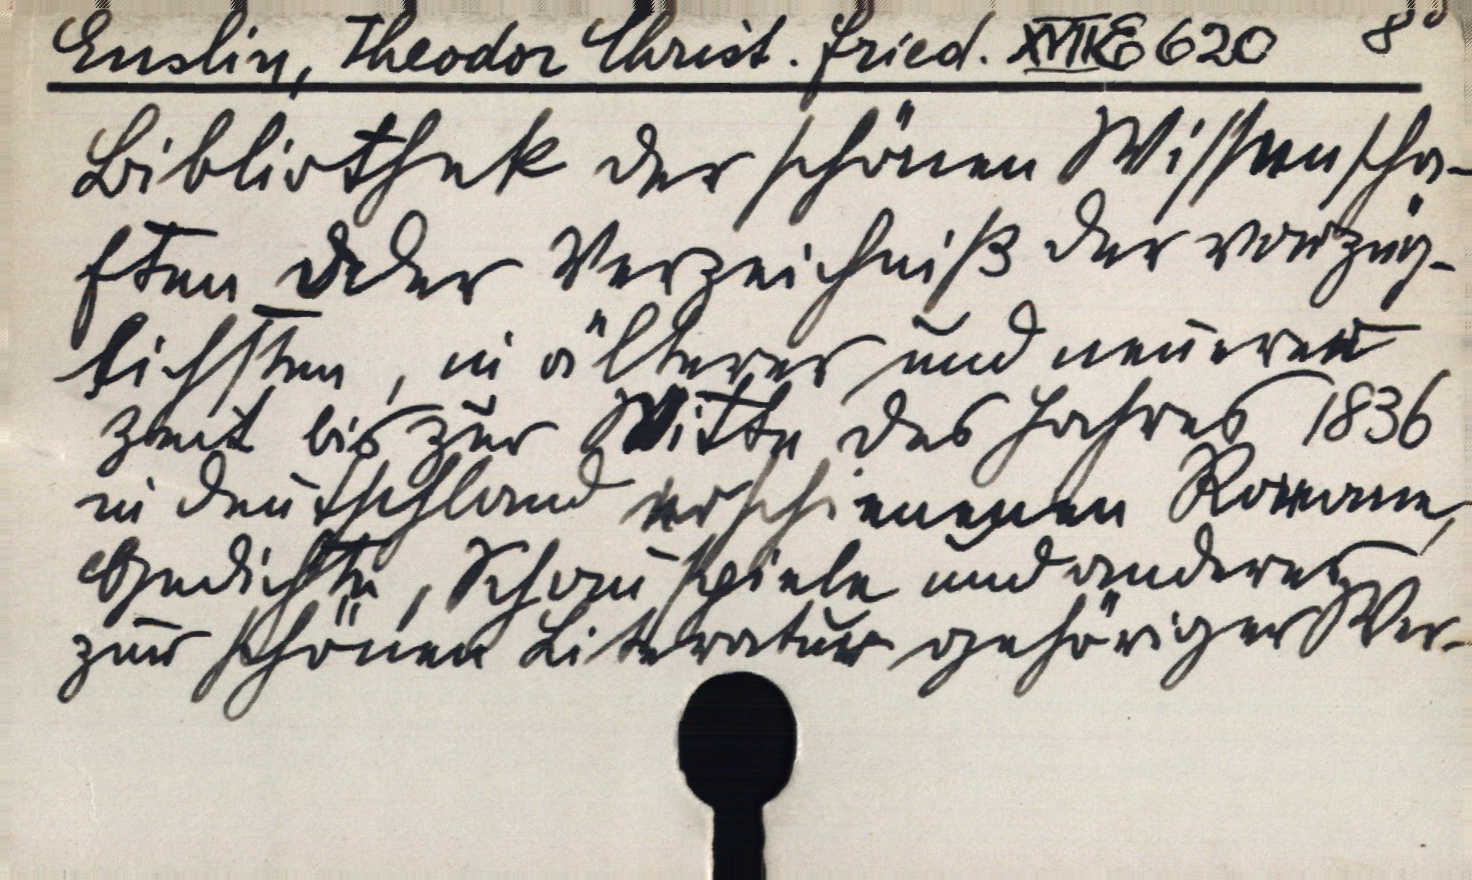 Enslin, Theodor Christ. Fried. XVII E 620 8°
Bibliothek der schönen Wissenscha-
ften oder Verzeichniß der vorzüg-
lichsten, in älterer und neuerer
Zeit bis zur Mitte des Jahres 1836
in Deutschland erschienenen Romane,
Gedichte, Schauspiele und anderer
zur schönen Literatur gehöriger Wer-